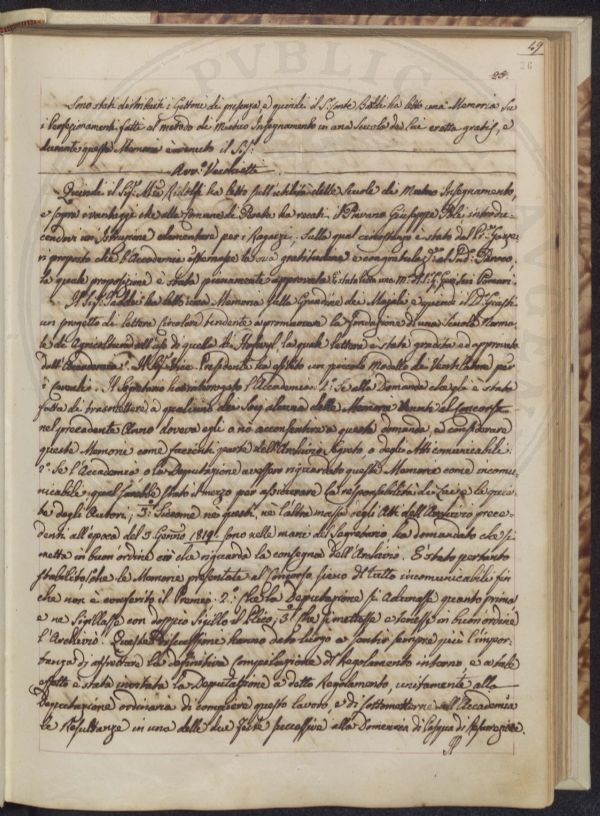 49
26
25.
Sono stati distribuiti i Gettoni di presenza, e quindi il S.r Conte Bardi ha letto una Memoria su
i Perfezionamenti fatti al metodo di Mutuo Insegnamento in una Scuola da Lui eretta gratis, e
durante questa Memoria è venuto il Sig.
Avv.o Vecchietti
Quindi il Sig. M.se Ridolfi ha letto sull'utilità delle Scuole di Mutuo Insegnamento,
e sopra i vantaggi che alla Comune di ha recati il Parroco Giuseppe introdu-
cendovi un Istruzione elementare per i Ragazzi. Sulla qual circostanza è stato dal
ri proposto che l'Accademia esternasse la sua gratitudine e congratulaz. al Sud.o Parroco,
la quale proposizione è stata pienamente approvata. È stata letta una M.a del S.
Il Sig. Taddei ha letto una Memoria sulla Grandine dei Magali e quindi il D.r
un progetto di Lettera Circolare tendente a promuovere la fondazione di una Scuola Norma-
le di Agricoltura all'uso di quella di la qual lettera è stata gradita ed approvata
dall'Accademia. Il Sig. Vice Presidente ha esibito un piccolo Modello di Ventilatore per
i . Il Segretario ha interrogato l'Accademia. 1.o Se alla Domanda che gli è stata
fatta di trasmettere a qualcuno dei Socj alcuna delle Memorie venute al Concorso
nel precedente Anno doveva egli o nò acconsentire a questa domanda, e considerare
queste Memorie come facenti parte dell'Archivio Segreto, o degli Atti comunicabili.
2.o Se l'Accademia o la Deputazione avessero riguardato queste Memorie come incomu-
nicabili, qual sarebbe stato il mezzo per assicurare la responsabilità di Lui e la quie-
te degli Autori; 3.o Siccome nè questi, nè l'altra massa degli Atti dell'Archivio prece-
denti all'epoca del 3 Genn.o 1819 sono nelle mani del Segretario, ha domandato che si
metta in buon'ordine ciò che riguarda la consegna dell'Archivio. È stato pertanto
stabilito 1.o che le Memorie presentate al Concorso siano del tutto incomunicabili fin
che non è conferito il Premio. 2.o che la Deputazione si adunasse quanto prima
e ne Sigillasse con doppio Sigillo il Plico; 3.o che si mettesse e tenesse in buon ordine
l'Archivio. Queste Discussioni hanno dato luogo a sentir sempre più l'impor-
tanza di affrettare la definitiva Compilazione del Regolamento interno, e a tale
effetto è stata invitata la Deputazione a detto Regolamento, unitamente alla
Deputazione ordinaria di compiere questo lavoro, e di sottometterne all'Accademia
le Resultanze in una delle due Sedute successive alla Domenica di Pasqua di Resurrezione.